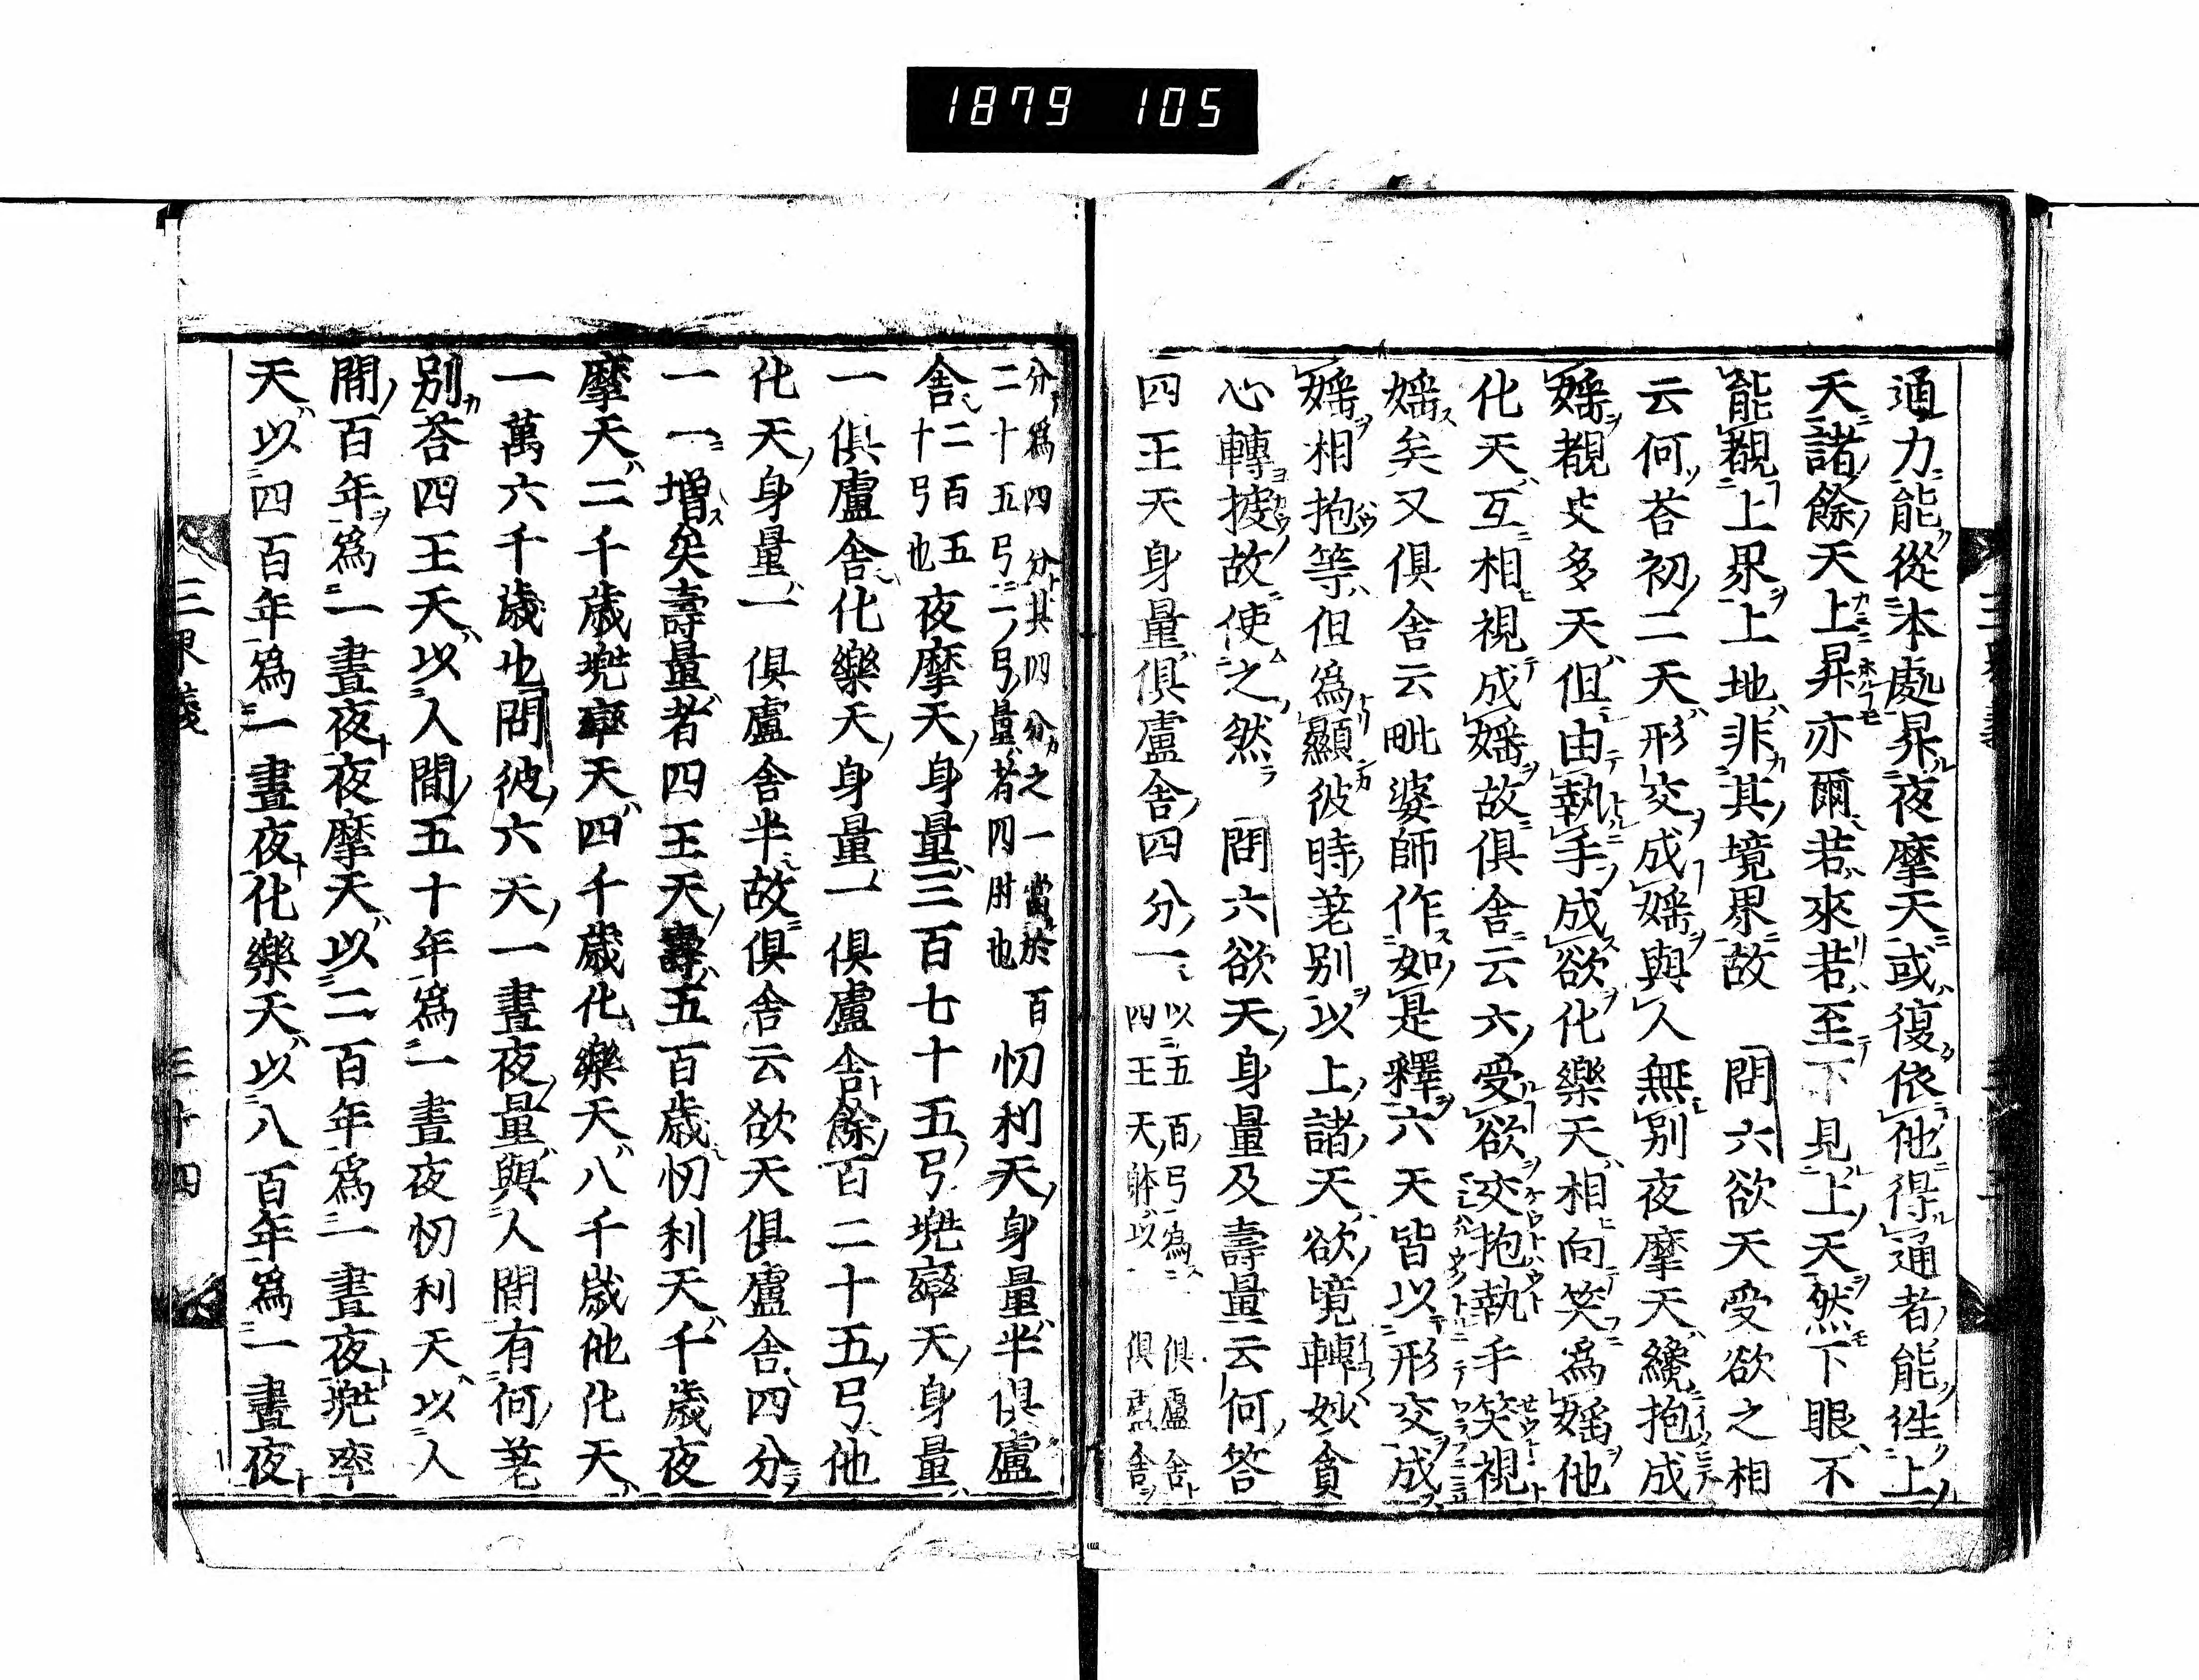 1879 105
通力能從本處昇夜摩天或復依他得通者能徃上
天諸餘天上昇亦爾若來若至下見上天然下眼不
能覩上界上地非其境界故 問六欲天受欲之相
云何荅初二天形交成婬與人無別夜摩天纔抱成
婬覩史多天但由執手成欲化樂天相向笑爲婬他
化天互相視成婬故俱舍云六受欲交抱執手笑視
婬矣又俱舍云毗婆師作如是釋六天皆以形交成
婬相抱等但爲顯彼時差別以上諸天欲境轉妙貪
心轉捷故使之然 問六欲天身量及壽量云何答
四王天身量俱盧舍四分一以五百弓爲一俱盧舍四王天躰以俱盧舍
分爲四分其四分之一當於百二十五弓一弓量者四肘也忉利天身量半俱盧
舍二百五十弓也夜摩天身量三百七十五弓兠率天身量
一俱盧舍化樂天身量一俱盧舍餘百二十五弓他
化天身量一俱盧舍半故俱舍云欲天俱盧舍四分
一一增矣壽量者四王天壽五百歳忉利天千歳夜
摩天二千歳兠率天四千歳化樂天八千歳他化天
一萬六千歳也問彼六天一晝夜量與人間有何差
別荅四王天以人間五十年爲一晝夜忉利天以人
間百年爲一晝夜夜摩天以二百年爲一晝夜兠率
天以四百年爲一晝夜化樂天以八百年爲一晝夜
三界義